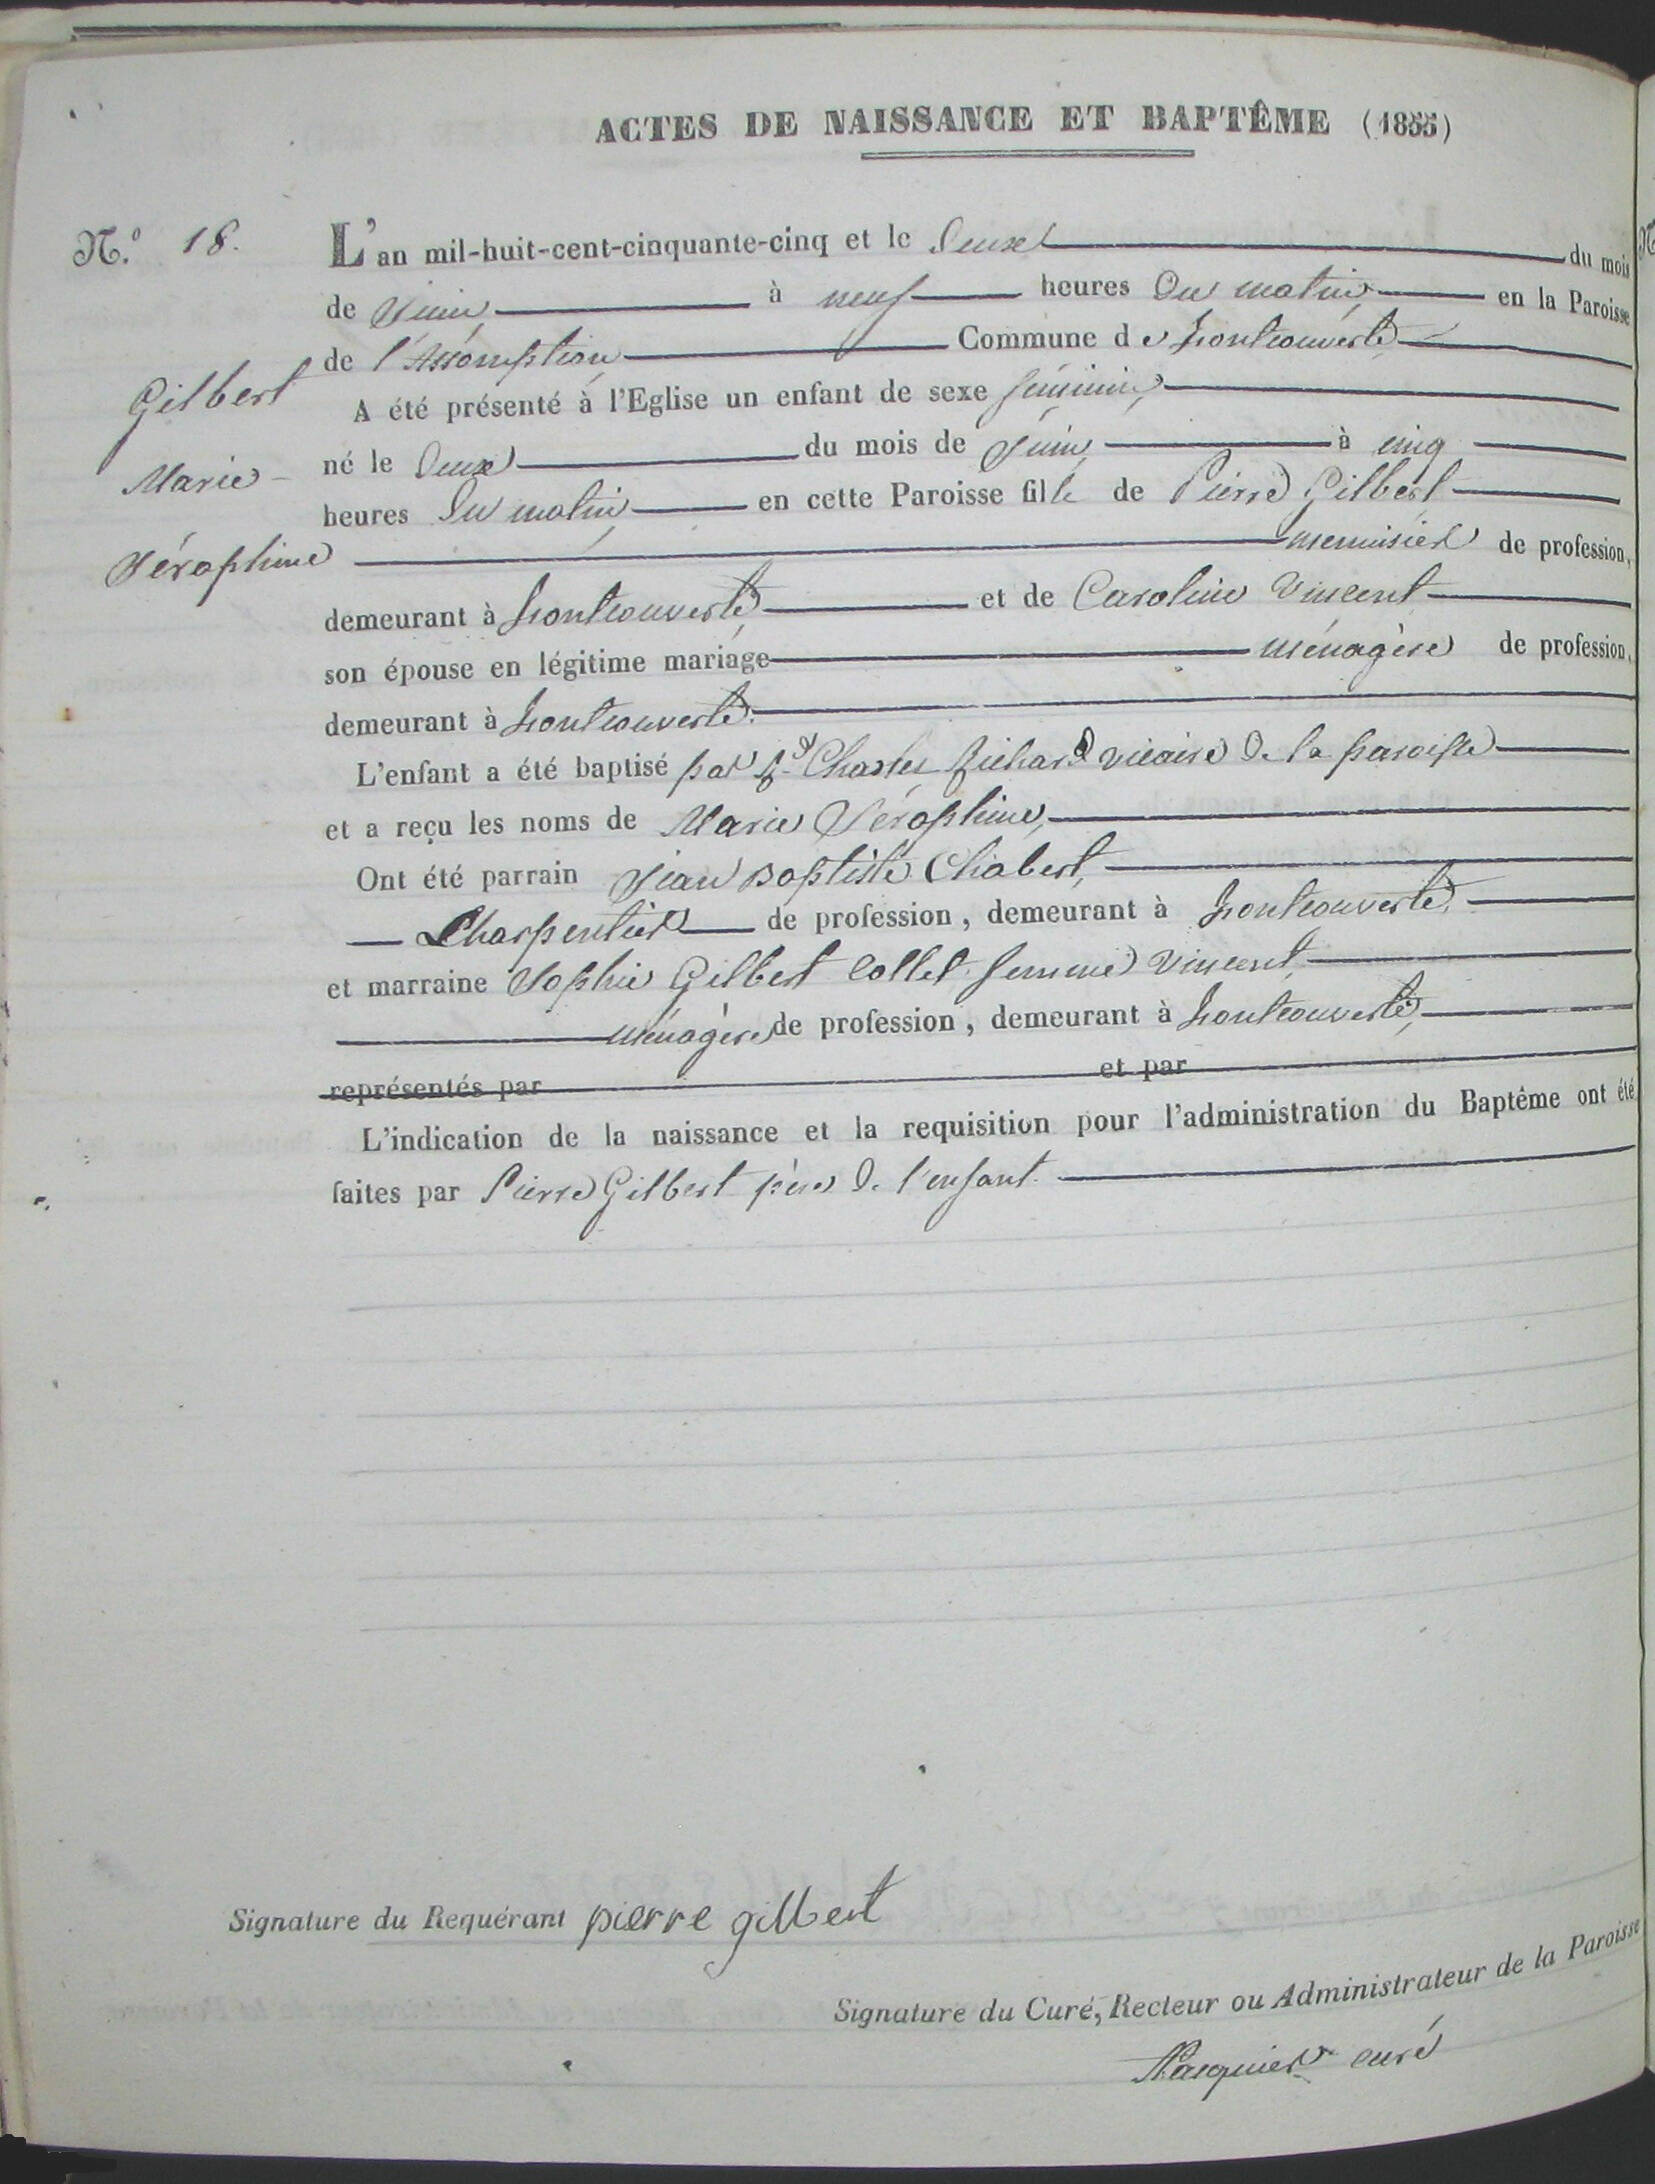 ACTES DE NAISSANCE ET BAPTÊME (1855)
N.º 18.
Gilbert
Marie
Séraphine
L'an mil-huit-cent-cinquante-cinq et le deux du mois
de Juin à neuf heures du matin en la Paroisse
de l'Assomption Commune de Hontcouverte
A été présenté à l'Eglise un enfant de sexe féminin,
né le deux du mois de Juin à cinq
heures du matin en cette Paroisse fille de Pierre Gilbert
menuisier de profession,
demeurant à Hontcouverte et de Caroline Vincent
son épouse en légitime mariage ménagère de profession,
demeurant à Hontcouverte.
L'enfant a été baptisé par Rd Charles Richard vicaire de la paroisse
et a reçu les noms de Marie Séraphine,
Ont été parrain Jean Baptiste Chabert,
Charpentier de profession, demeurant à Hontcouverte,
et marraine Sophie Gilbert Collet femme Vincent
ménagère de profession, demeurant à Hontcouverte,
représentés par et par
L'indication de la naissance et la requisition pour l'administration du Baptême ont été
faites par Pierre Gilbert père de l'enfant.
Signature du Requérant pierre gilbert
Signature du Curé, Recteur ou Administrateur de la Paroisse
Pasquier curé